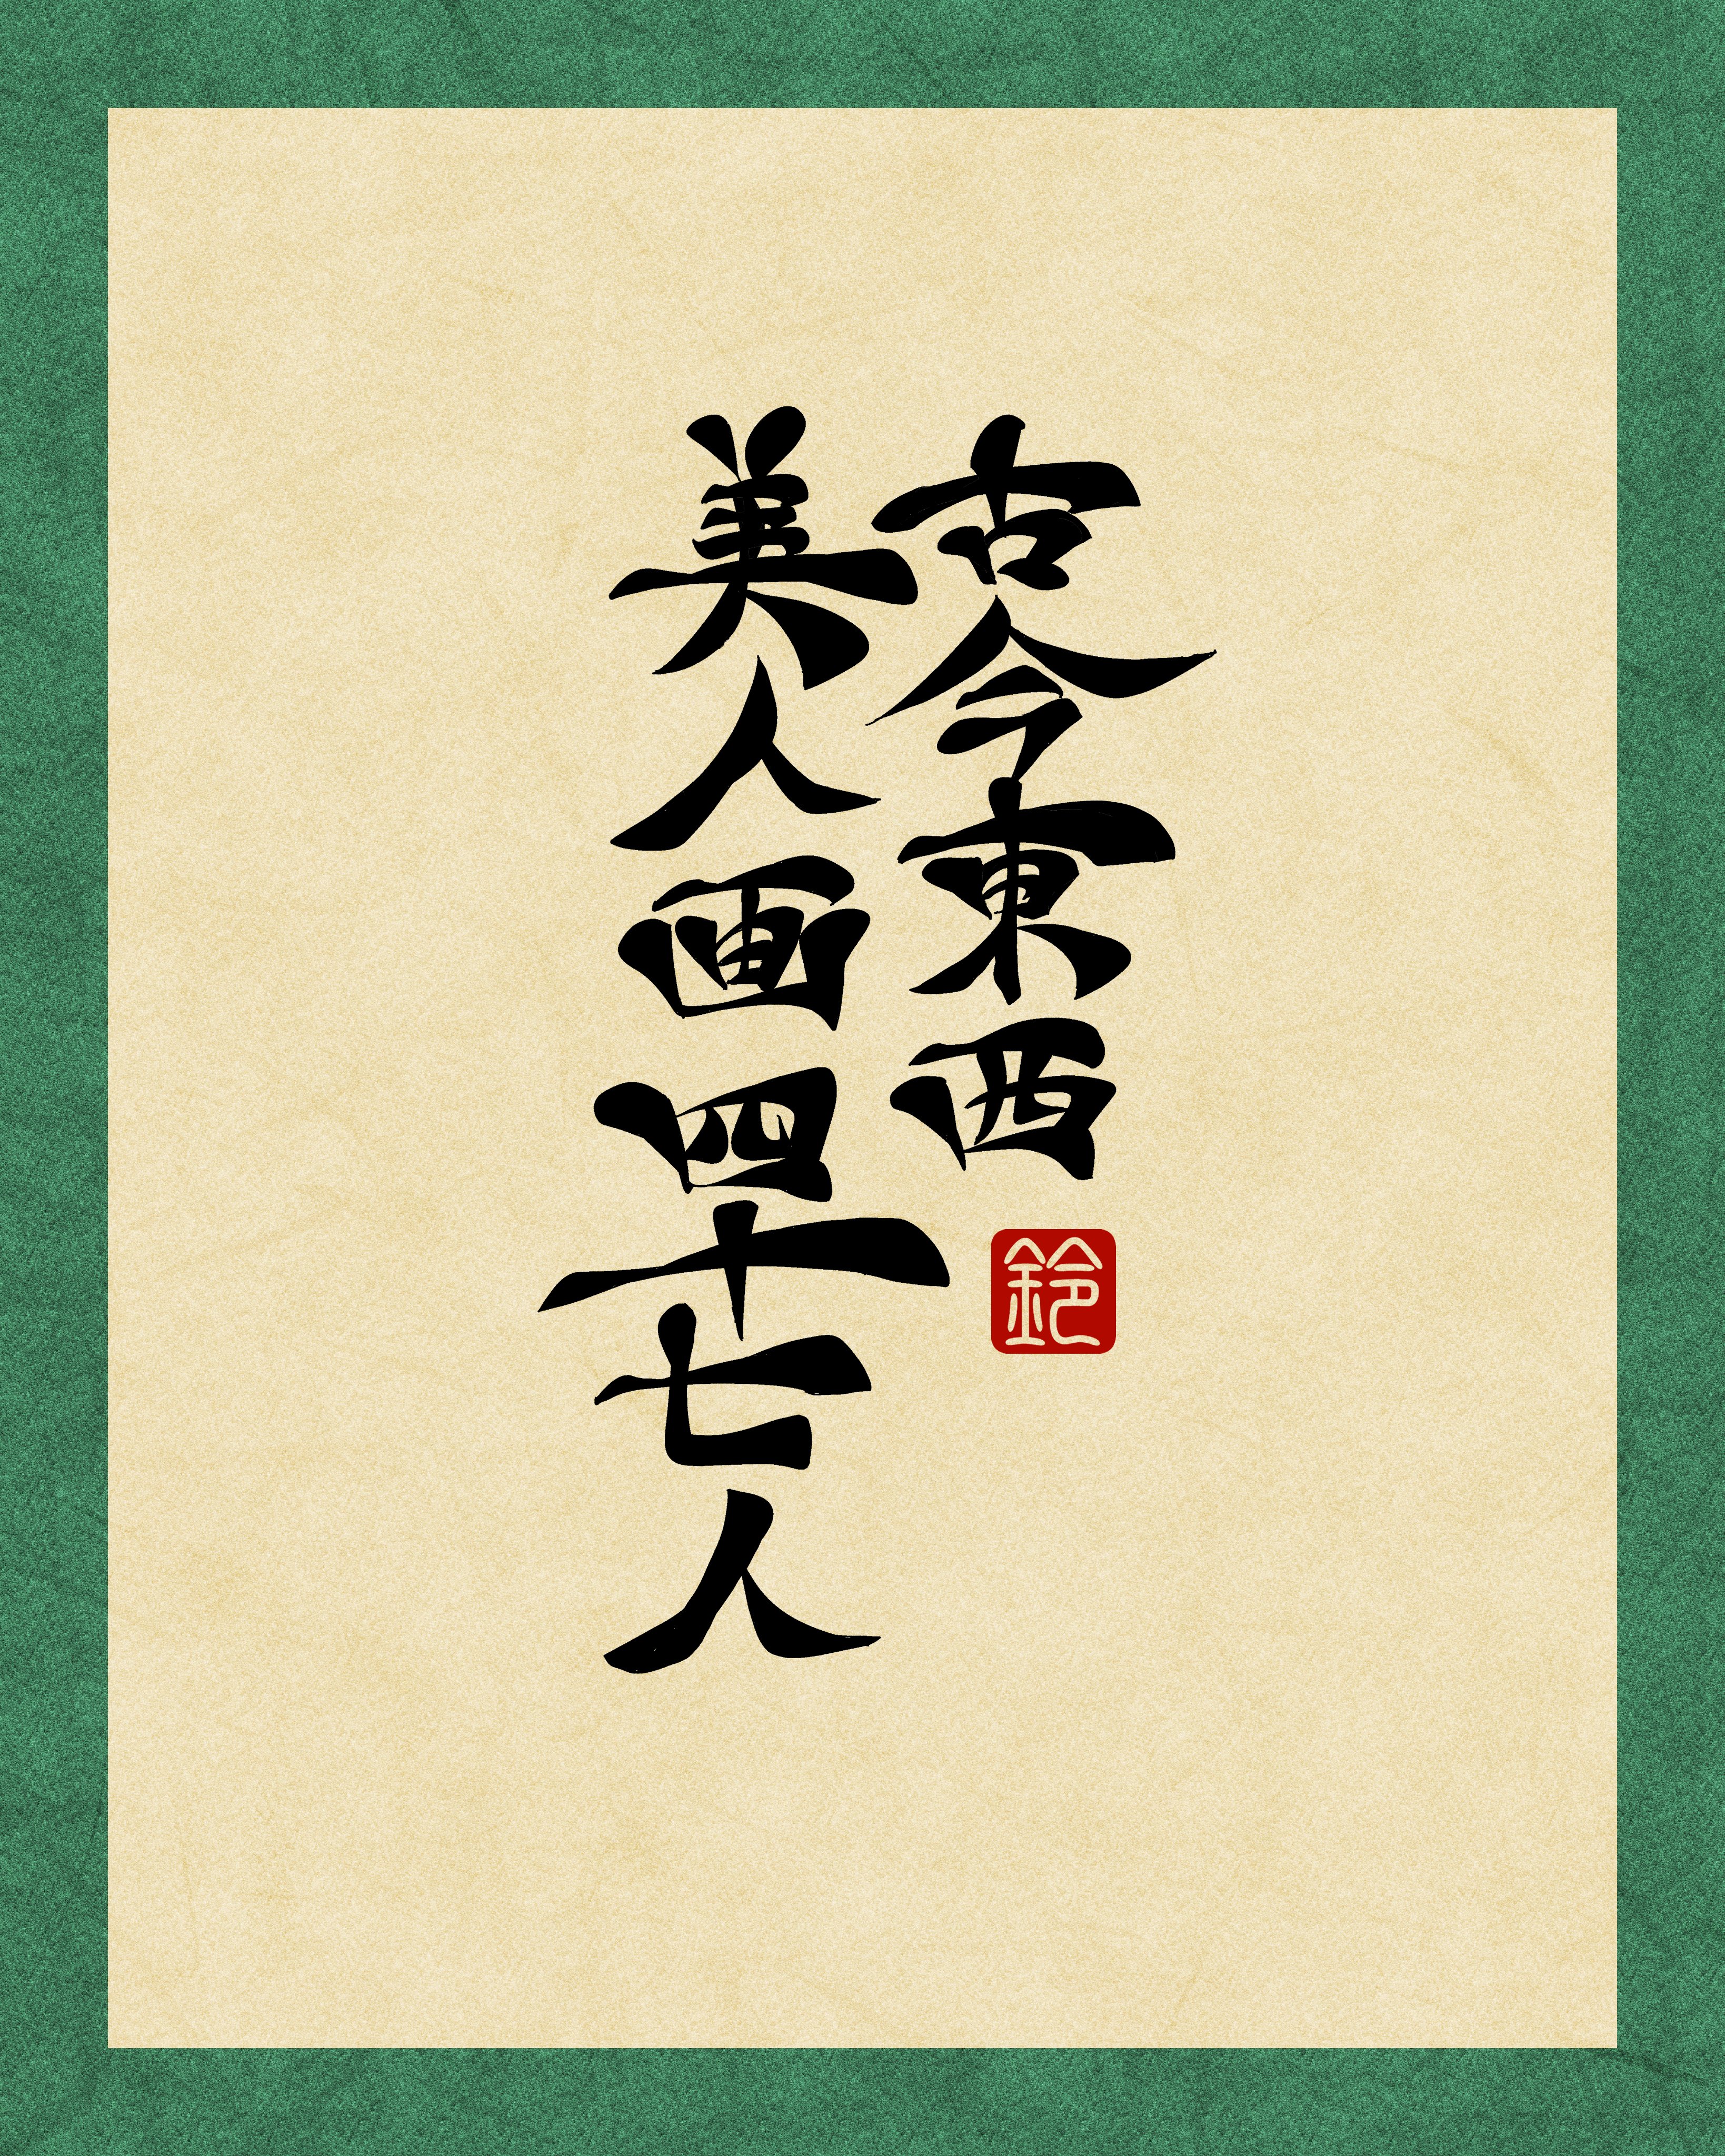 古今東西
鈴
美人画四十七人